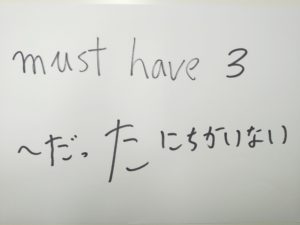 must have 3
～だった にちがいない